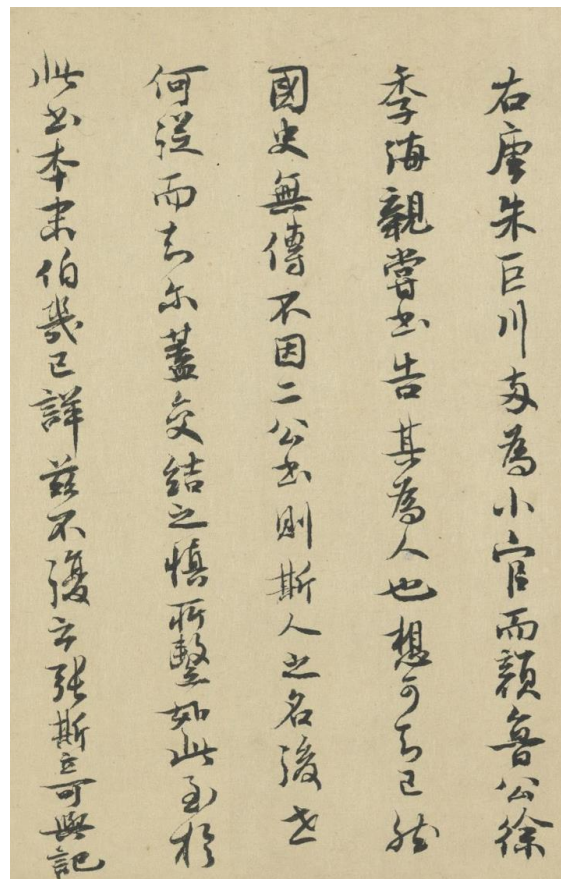 右唐朱巨川両為小官而顔魯公徐
季海親嘗書告其為人也想可知已然
國史無傳不因二公書則斯人之名後世
何從而知尔蓋交結之慎所繫如此至於
此書本末伯幾已詳茲不復云張斯立可與記